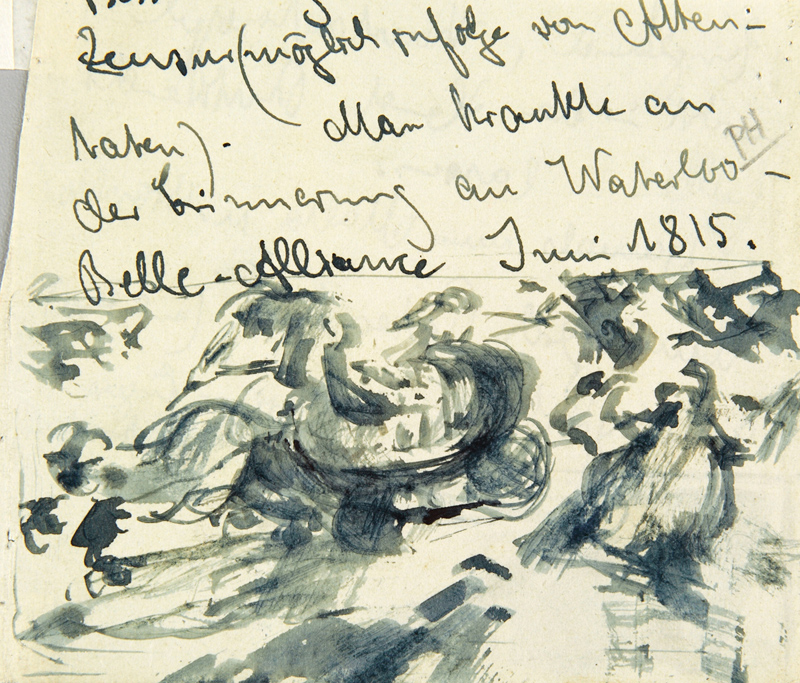 Zensur (möglich zufolge von Atten-
taten). Man krankte an
der Erinnerung an Waterloo -
Belle-Alliance Juni 1815.
PH